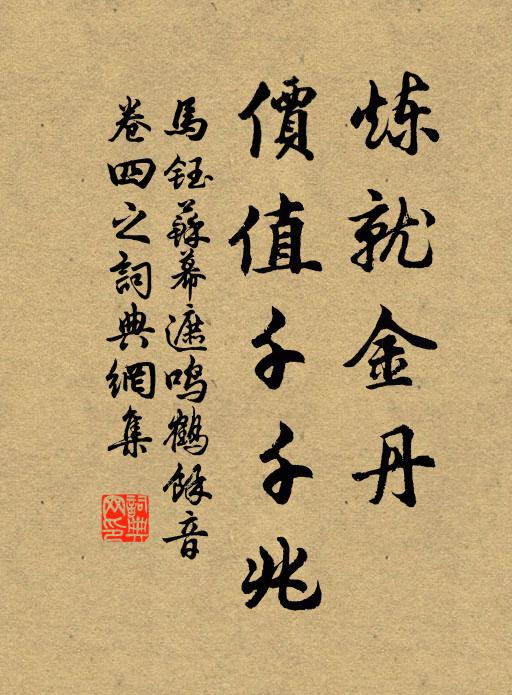 炼就金丹
價值千千兆
馬鈺蘇幕遮鳴鶴餘音
卷四之詞典網集
詞典網印